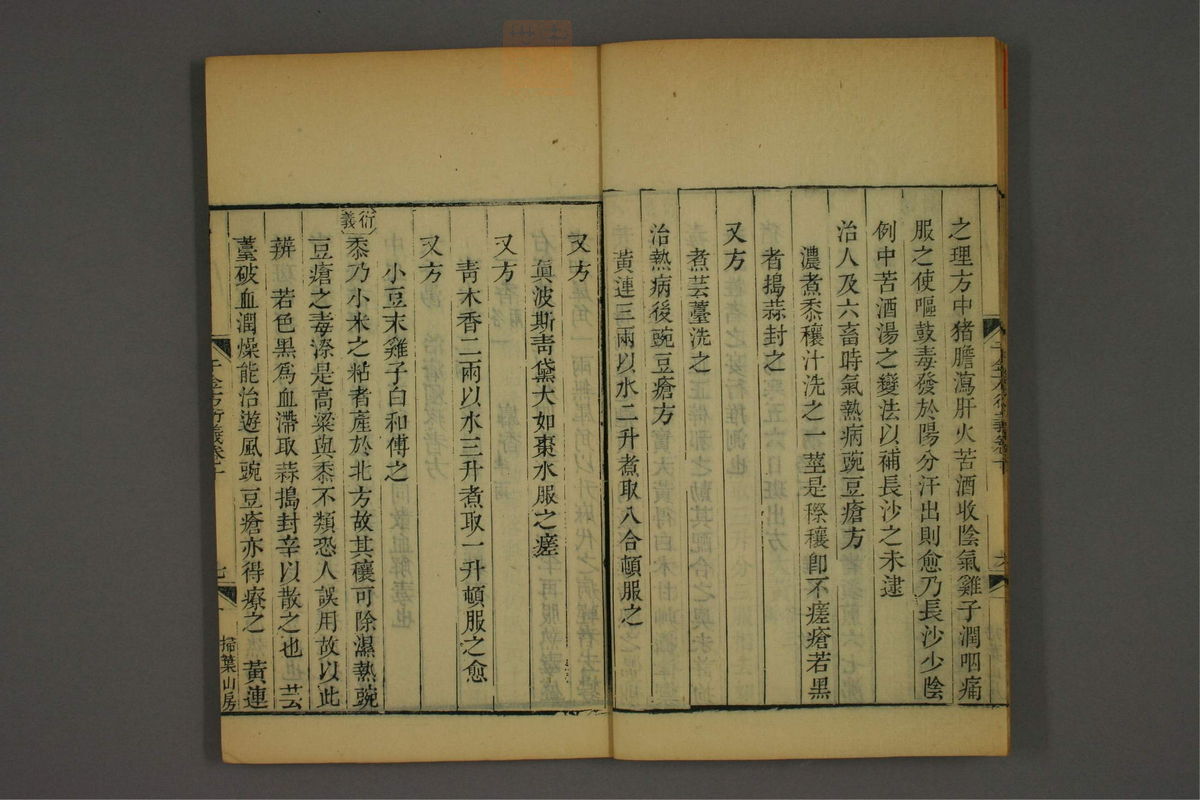 之理方中猪膽瀉肝火苦酒收陰氣雞子潤咽痛
服之使嘔鼓毒發於陽分汗出則愈乃長沙少陰
例中苦酒湯之變法以補長沙之未逮
治人及六畜時氣熱病豌豆瘡方
濃煮黍穰汁洗之一莖是穄穰卽不瘥瘡若黑
者搗蒜封之
又方
煮芸薹洗之
治熱病後豌豆瘡方
黃連三兩以水二升煮取八合頓服之
又方
眞波斯靑黛大如棗水服之瘥
又方
靑木香二兩以水三升煮取一升頓服之愈
又方
小豆末雞子白和傅之
衍義
黍乃小米之粘者產於北方故其穰可除濕熱豌
豆瘡之毒漈是高粱與黍不類恐人誤用故以此
辨 若色黑爲血滯取蒜搗封辛以散之也 芸
薹破血潤燥能治遊風豌豆瘡亦得療之 黃連
千金方衍義卷十
七
掃葉山房